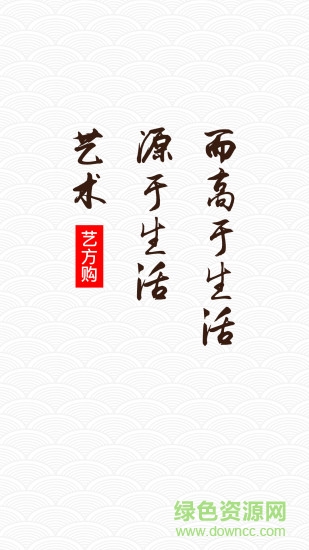 艺术
艺方购
源于生活
而高于生活
绿色资源网
www.downcc.com